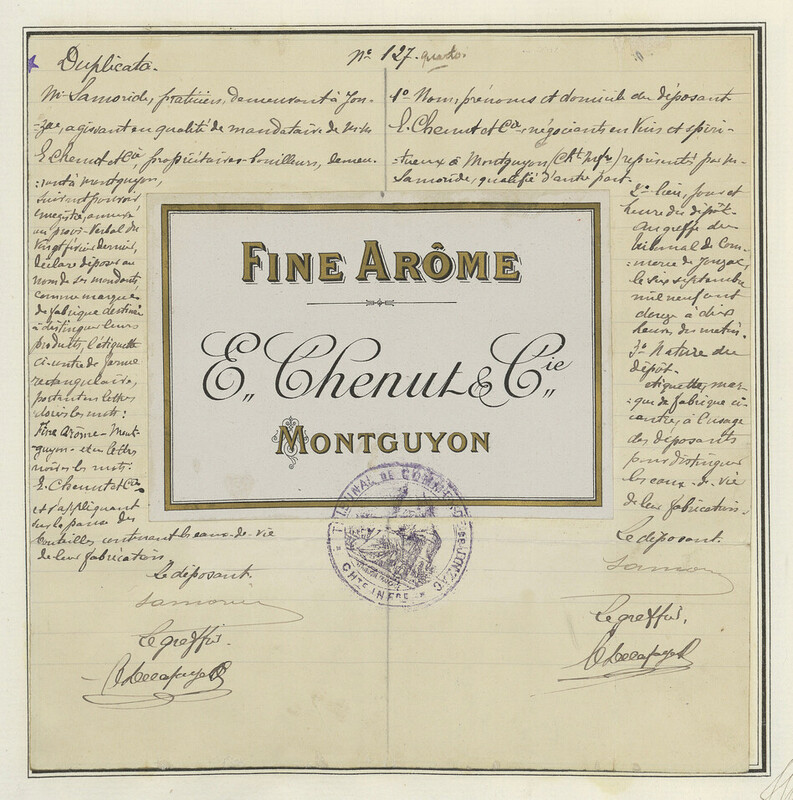 Duplicata.
Nº 127 quarto.
Mr Samoride, praticien, demeurant à Jon-
-zac, agissant en qualité de mandataire de
E. Chenut et Cie, propriétaires-bouilleurs, demeu-
-rant à Montguyon,
suivant pouvoir
enregistré, annexé
au procès-verbal du
vingt février dernier,
déclare déposer au
nom de ses mandants,
comme marque
de fabrique destinée
à distinguer leurs
produits, l'étiquette
ci-contre de forme
rectangulaire,
portant en lettres
dorées les mots:
Fine Arôme - Mont-
guyon - et en lettres
noires les mots:
E. Chenut et Cie
et s'appliquant
sur la panse des
bouteilles contenant les eaux-de-vie
de leur fabrication
Le déposant.
Samoride
Le greffier.
FINE ARÔME
E. Chenut & Cie
MONTGUYON
TRIBUNAL DE COMMERCE DE JONZAC
CHTE INFRE
1º Nom, prénoms et domicile du déposant
E. Chenut et Cie négociants en vins et spiri-
-tueux à Montguyon (Chte Infre) représentés par M.
Samoride, qualifié d'autre part.
2º lieu, jour et
heure du dépôt.
au greffe du
tribunal de Com-
-merce de Jonzac,
le six septembre
mil neuf cent
douze à dix
heures du matin.
3º Nature du
dépôt.
étiquette, mar-
-que de fabrique ci-
contre, à l'usage
des déposants
pour distinguer
les eaux-de-vie
de leur fabrication.
Le déposant.
Le greffier,